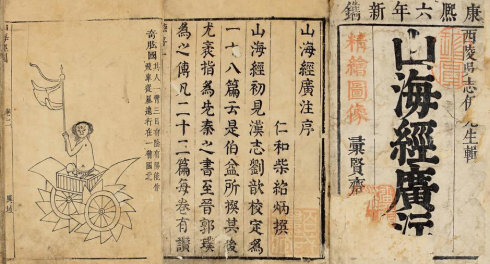 康熙六年新鐫
西陵吳志伊先生輯
山海經廣注
精繪圖像
彙賢齋
山海經廣注序
仁和柴紹炳撰
山海經初見漢志劉歆校定為
一十八篇云是伯益所撰其後
尤袤指為先秦之書至晉郭璞
為之傳凡二十二篇每卷有讚
奇肱國
其人一臂三目有陰有陽能作
飛車從風遠行在一臂國北
異域